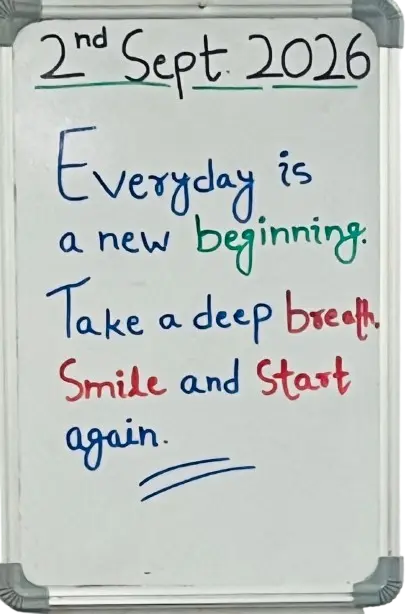 2nd Sept. 2026
Everyday is
a new beginning.
Take a deep breath.
Smile and Start
again.